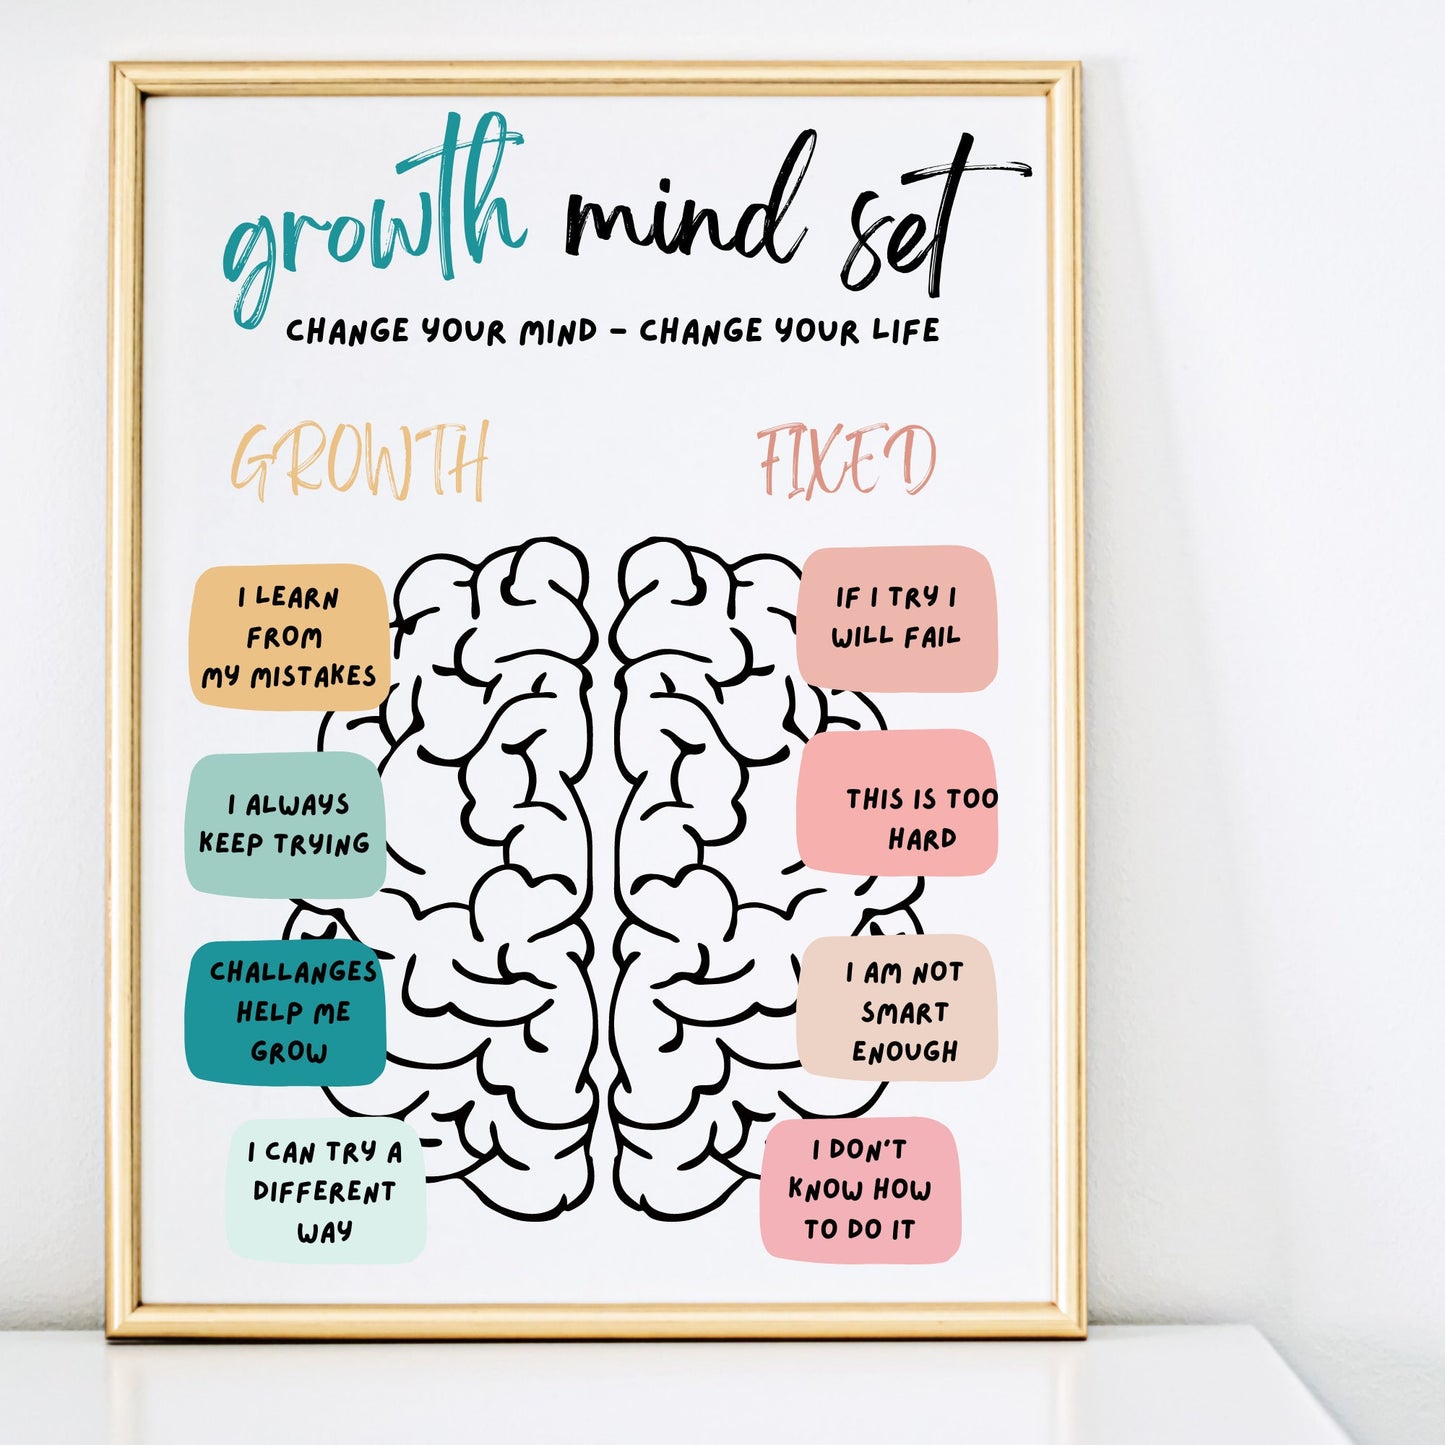 growth mind set
CHANGE YOUR MIND - CHANGE YOUR LIFE
GROWTH
FIXED
I LEARN
FROM
MY MISTAKES
I ALWAYS
KEEP TRYING
CHALLANGES
HELP ME
GROW
I CAN TRY A
DIFFERENT
WAY
IF I TRY I
WILL FAIL
THIS IS TOO
HARD
I AM NOT
SMART
ENOUGH
I DON'T
KNOW HOW
TO DO IT